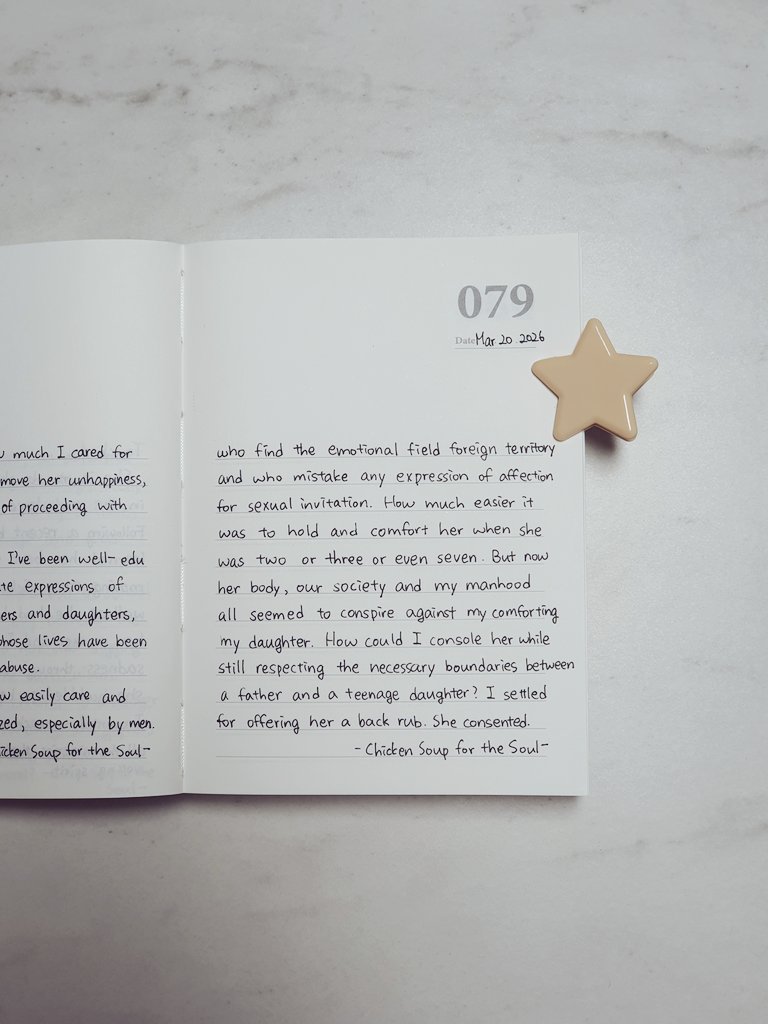 much I cared for
move her unhappiness,
of proceeding with
I've been well-edu
te expressions of
ers and daughters,
whose lives have been
abuse.
w easily care and
zed, especially by men.
icken Soup for the Soul-
079
Date Mar 20. 2026
who find the emotional field foreign territory
and who mistake any expression of affection
for sexual invitation. How much easier it
was to hold and comfort her when she
was two or three or even seven. But now
her body, our society and my manhood
all seemed to conspire against my comforting
my daughter. How could I console her while
still respecting the necessary boundaries between
a father and a teenage daughter? I settled
for offering her a back rub. She consented.
- Chicken Soup for the Soul-